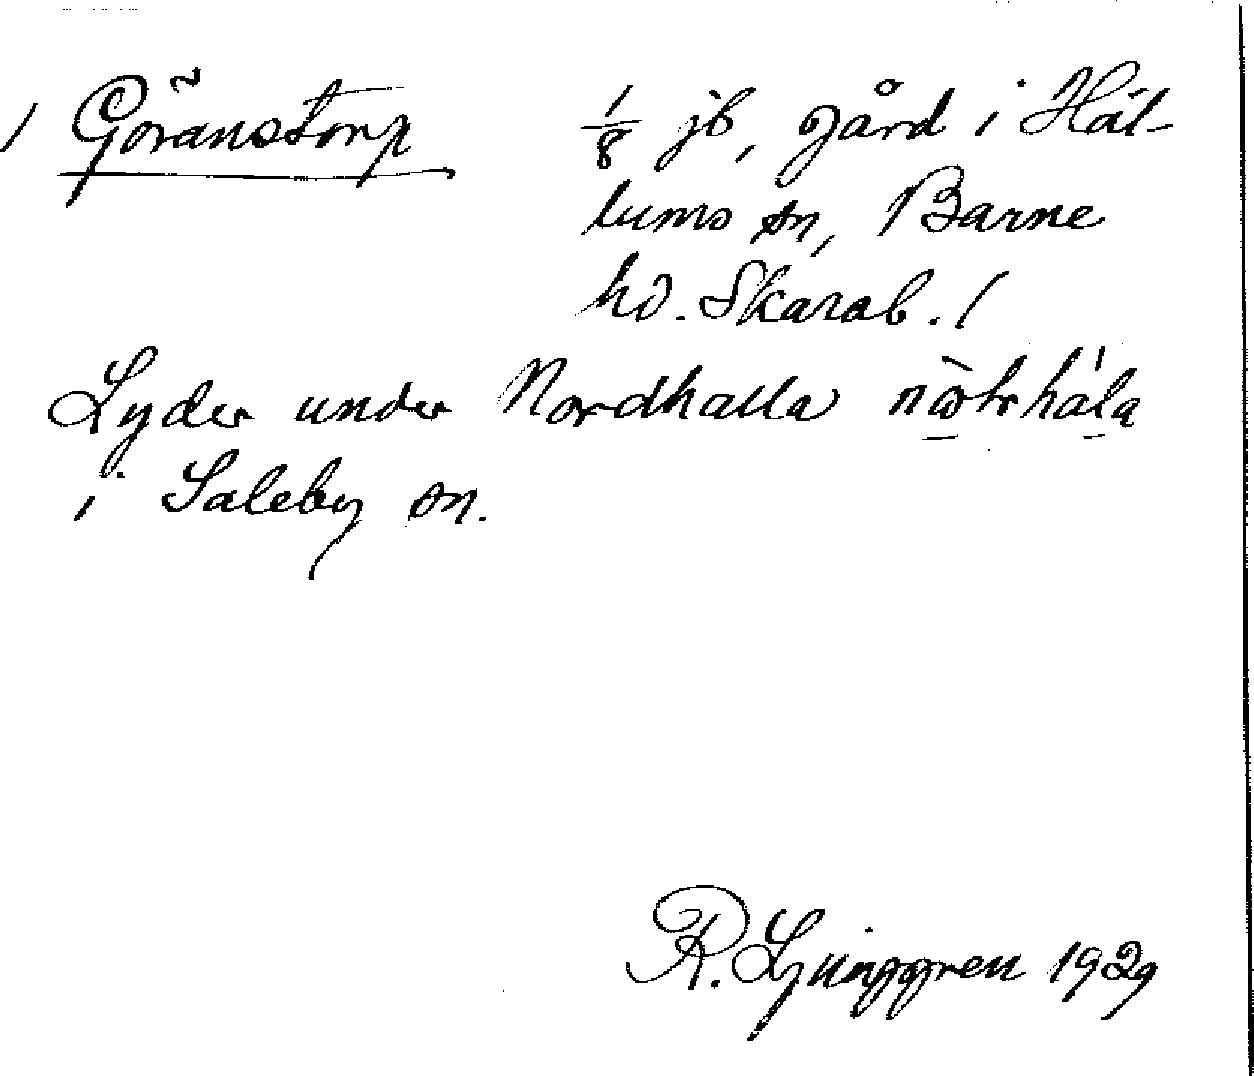 / Göranstorp 1/8 jb, gård i Häl-
lums sn, Barne
hd. Skarab. /
Lyder under Nordhalla
i Saleby sn.
R. Ljunggren 1929